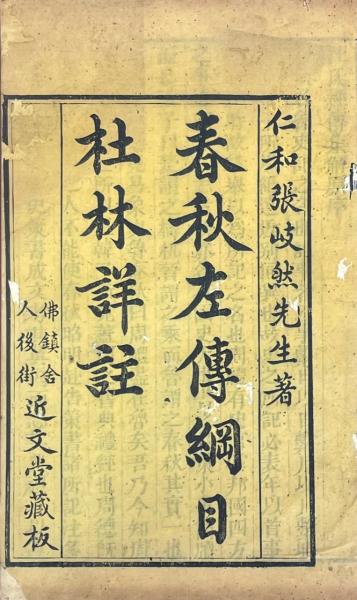 仁和張岐然先生著
春秋左傳綱目
杜林詳註
佛鎮舍
人後街
近文堂藏板